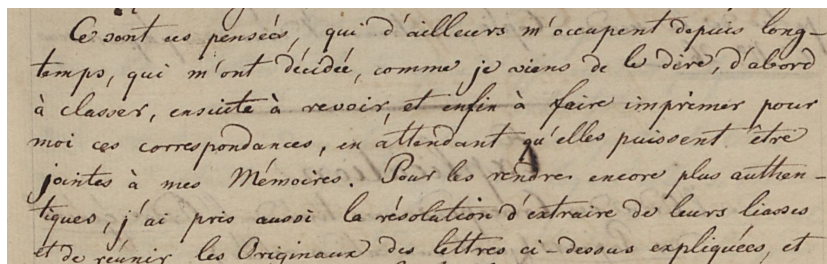 Ce sont ces pensées, qui d'ailleurs m'occupent depuis long-
temps, qui m'ont décidée, comme je viens de le dire, d'abord
à classer, ensuite à revoir, et enfin à faire imprimer pour
moi ces correspondances, en attendant qu'elles puissent être
jointes à mes Mémoires. Pour les rendre encore plus authen-
tiques, j'ai pris aussi la résolution d'extraire de leurs liasses
et de réunir les Originaux des lettres ci-dessus expliquées, et